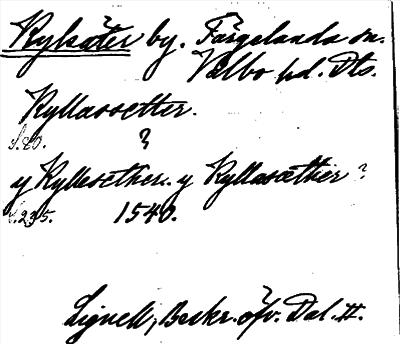 Rylsäter by. Färgelanda sn.
Valbo hd. Dls.
Ryllassetter.
S. 20. ?
y Ryllesether. y Ryllasæther ?
S. 235. 1540.
Lignell, Beskr. öfv. Dal. II.